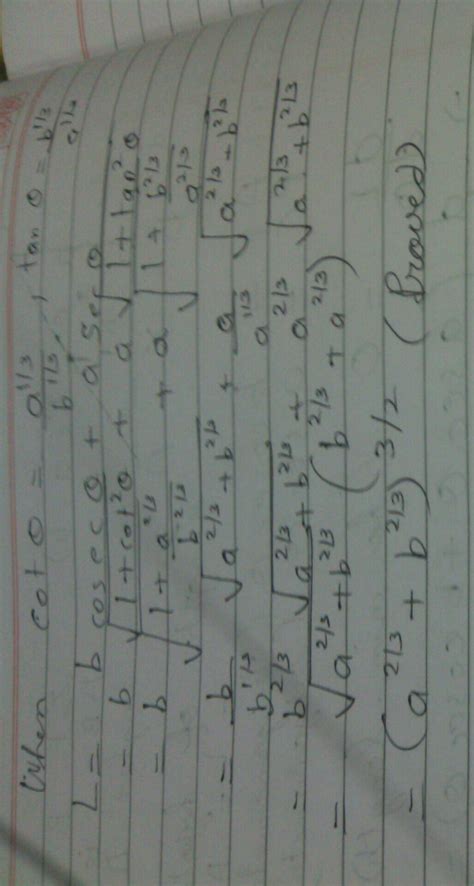 When cot θ = a^1/3 / b^1/3 , tan θ = b^1/3 / a^1/3
L = b cosec θ + a sec θ
= b √(1 + cot²θ) + a √(1 + tan²θ)
= b √(1 + a^2/3 / b^2/3) + a √(1 + b^2/3 / a^2/3)
= b / b^1/3 √(a^2/3 + b^2/3) + a / a^1/3 √(a^2/3 + b^2/3)
= b^2/3 √(a^2/3 + b^2/3) + a^2/3 √(a^2/3 + b^2/3)
= √(a^2/3 + b^2/3) (b^2/3 + a^2/3)
= (a^2/3 + b^2/3)^3/2 (Proved)